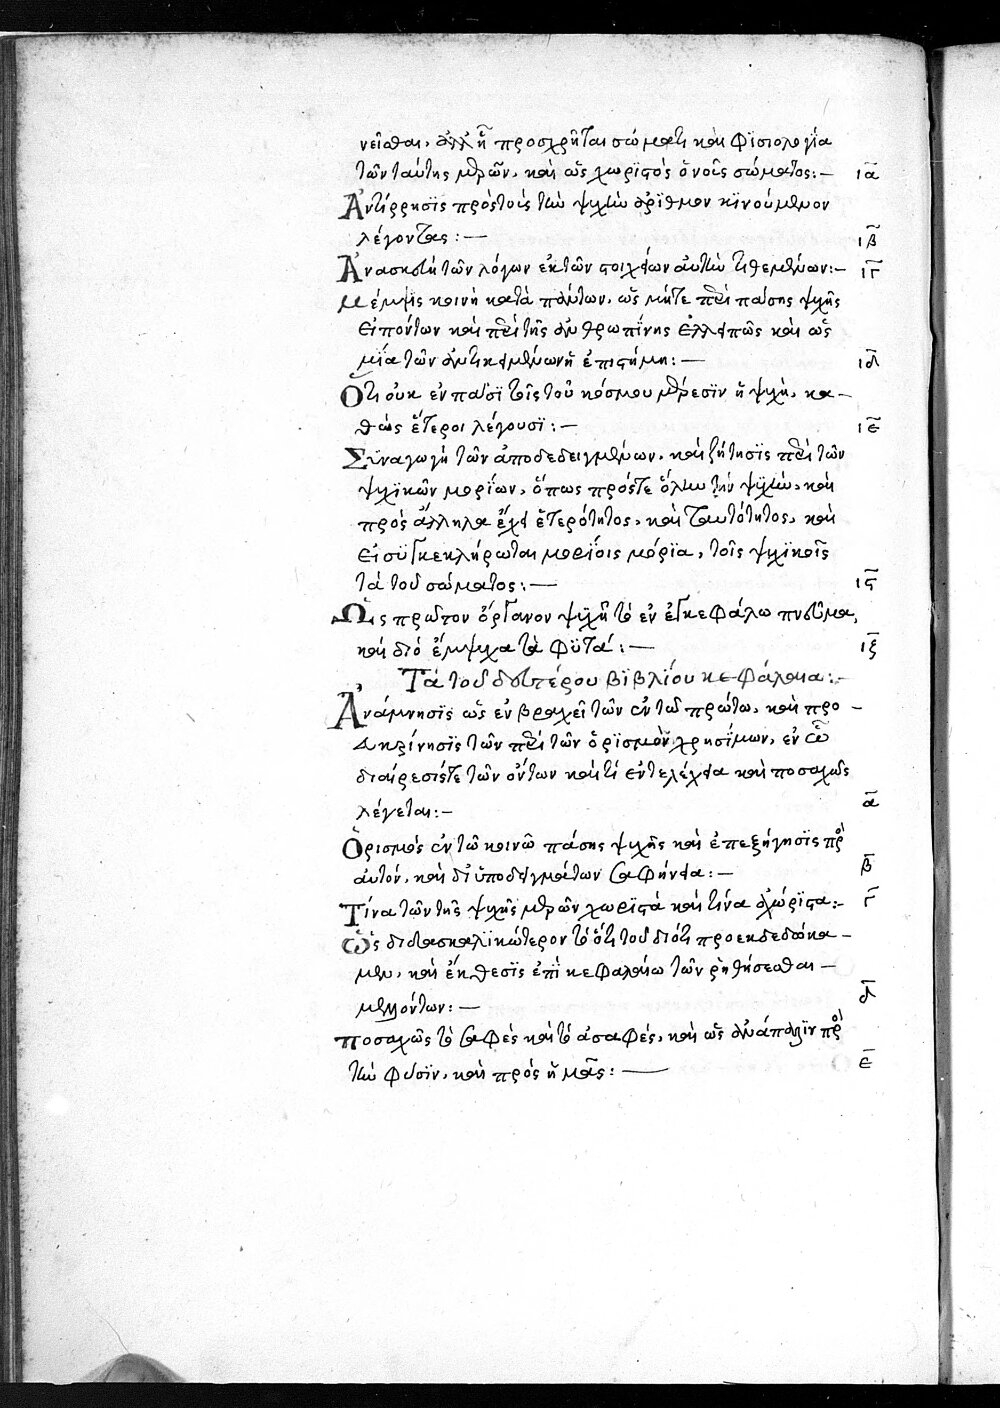 νεῖσθαι, ἀλλ' ᾗ προσχρῆται σώματι καὶ φϊσιολογία
τῶν ταύτης μερῶν, καὶ ὡς χωριστὸς ὁ νοῦς σώματος:— ια
Ἀντίρρησϊς πρὸς τοὺς τὴν ψυχὴν ἀρϊθμον κϊνούμενον
λέγοντας:— ιβ
Ἀνασκευὴ τῶν λόγων ἐκ τῶν στοιχείων αὐτὴν τιθεμένων:— ιγ
Μέμψϊς κοινὴ κατὰ πάντων, ὡς μήτε περὶ πάσης ψυχῆς
εἰπόντων καὶ περὶ τῆς ἀνθρωπίνης ἐλλειπῶς καὶ ὡς
μία τῶν ἀντικειμένων ἡ ἐπιστήμη:— ιδ
Ὅτι οὐκ ἐν πᾶσϊ τοῖς τοῦ κόσμου μέρεσϊν ἡ ψυχὴ, κα—
θὼς ἕτεροι λέγουσϊ:— ιε
Συναγωγὴ τῶν ἀποδεδειγμένων, καὶ ζήτησϊς περὶ τῶν
ψυχϊκῶν μορίων, ὅπως πρός τε ὅλην τὴν ψυχὴν, καὶ
πρὸς ἄλληλα ἔχει ἑτερότητος, καὶ ταυτότητος, καὶ
εἰ συγκεκλήρωται μορίοις μόρϊα, τοῖς ψυχϊκοῖς
τὰ τοῦ σώματος:— ις
Ὡς πρῶτον ὄργανον ψυχῆ τὸ ἐν ἐγκεφάλω πνεῦμα,
καὶ διὸ ἔμψυχα τὰ φϋτά:— ιζ
Τὰ τοῦ δευτέρου βϊβλίου κεφάλαια:—
Ἀνάμνησϊς ὡς ἐν βραχεῖ τῶν ἐν τῶ πρώτω, καὶ προ—
διευκρίνησϊς τῶν περὶ τῶν ὁρϊσμὸν χρησίμων, ἐν ὧ
διαίρεσίς τε τῶν ὄντων καὶ τί ἐντελέχεια καὶ ποσαχῶς
λέγεται:— α
Ὁρισμὸς ἐν τῶ κοινῶ πάσης ψυχῆς καὶ ἐπεξήγησϊς πρὸς
αὐτόν, καὶ δι' ὑποδειγμάτων σαφήνεια:— β
Τίνα τῶν τῆς ψυχῆς μερῶν χωρϊστὰ καὶ τίνα ἀχώρϊστα:— γ
Ὡς διδασκαλϊκώτερον τὸ ὅτι τοῦ διότι προεκδεδώκα—
μεν, καὶ ἔκθεσϊς ἐπὶ κεφαλαίω τῶν ῥηθήσεσθαι—
μελλόντων:— δ
Ποσαχῶς τὸ σαφὲς καὶ τὸ ἀσαφές, καὶ ὡς ἀνάπαλϊν πρὸς
τὴν φύσϊν, καὶ πρὸς ἡμᾶς:— ε